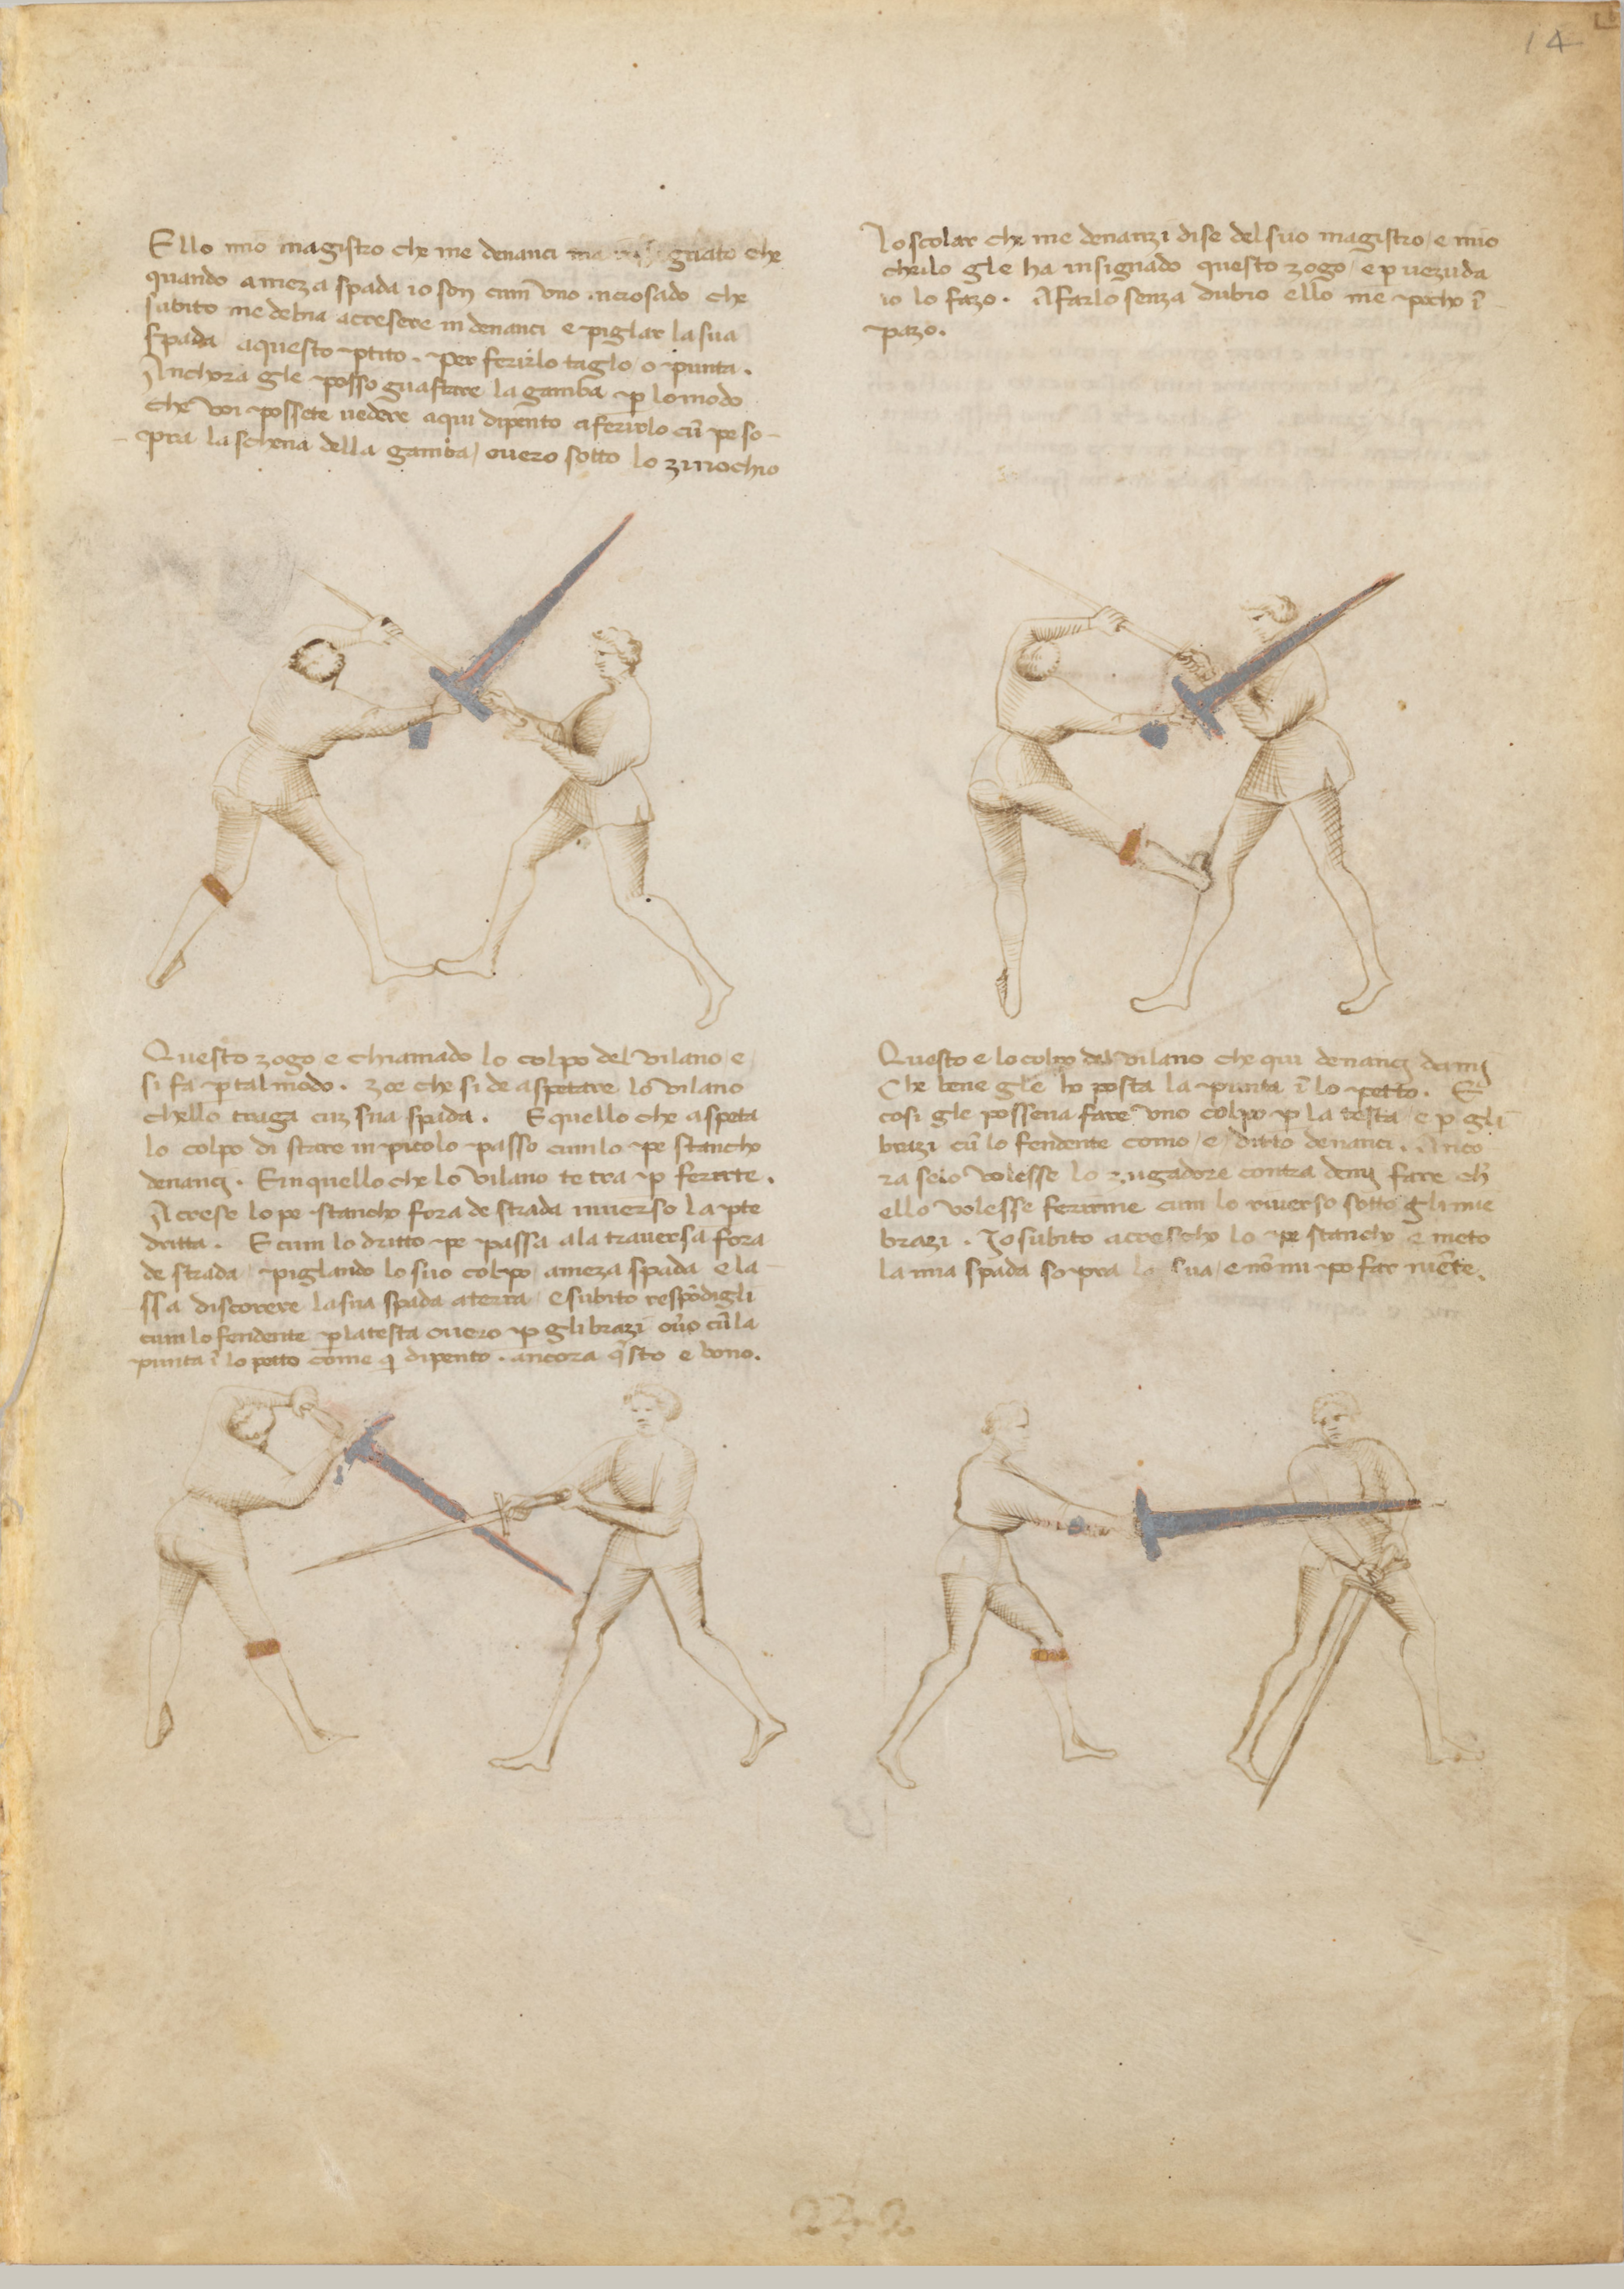 14
Ello mio magistro che me denanci gnato che
quando a meza spada io son cum uno incrosado che
subito me debia acresere in denanci e piglar la sua
spada a questo ptito. per ferirlo taglo o punta.
Anchora gle posso guastare la gamba p lo modo
che voi possete vedere aqui dipento a ferirlo cū pe so-
pra la schena della gamba / overo sotto lo zinochio
Lo scolar che me denanzi dise del suo magistro e mio
che ilo gle ha insignado questo zogo / e p vezuda
io lo fazo. A farlo senza dubio ello me pocho ī
pazo.
Questo zogo e chiamado lo colpo del vilano e
si fa p tal modo. zoe che si de aspetare lo vilano
chello traga cuz sua spada. E quello che aspeta
lo colpo di stare in picolo passo cum lo pe stancho
denanci. E in quello che lo vilano te tra p ferirte.
Acrese lo pe stancho fora de strada inverso la pte
dritta. E cum lo dritto pe passa ala traversa fora
de strada / piglando lo suo colpo / a meza spada e la-
ssa discorere la sua spada a terra / e subito respōdigli
cum lo fendente p la testa overo p gli brazi ov̄o cū la
punta ī lo petto come q dipento. ancora qsto e bono.
Questo e lo colpo del vilano che qui denanci de mi
Che bene gle ho posta la punta ī lo petto. E
cosi gle posseva fare uno colpo p la testa / e p gli
brazi cū lo fendente como / e / ditto denanci. Anco
ra se io volesse lo zugadore contra de mi fare ch
ello volesse ferirme cum lo riverso sotto gli mie
brazi. Io subito acrescho lo pe stancho e meto
la mia spada sopra la sua / e nō mi po far niēte.